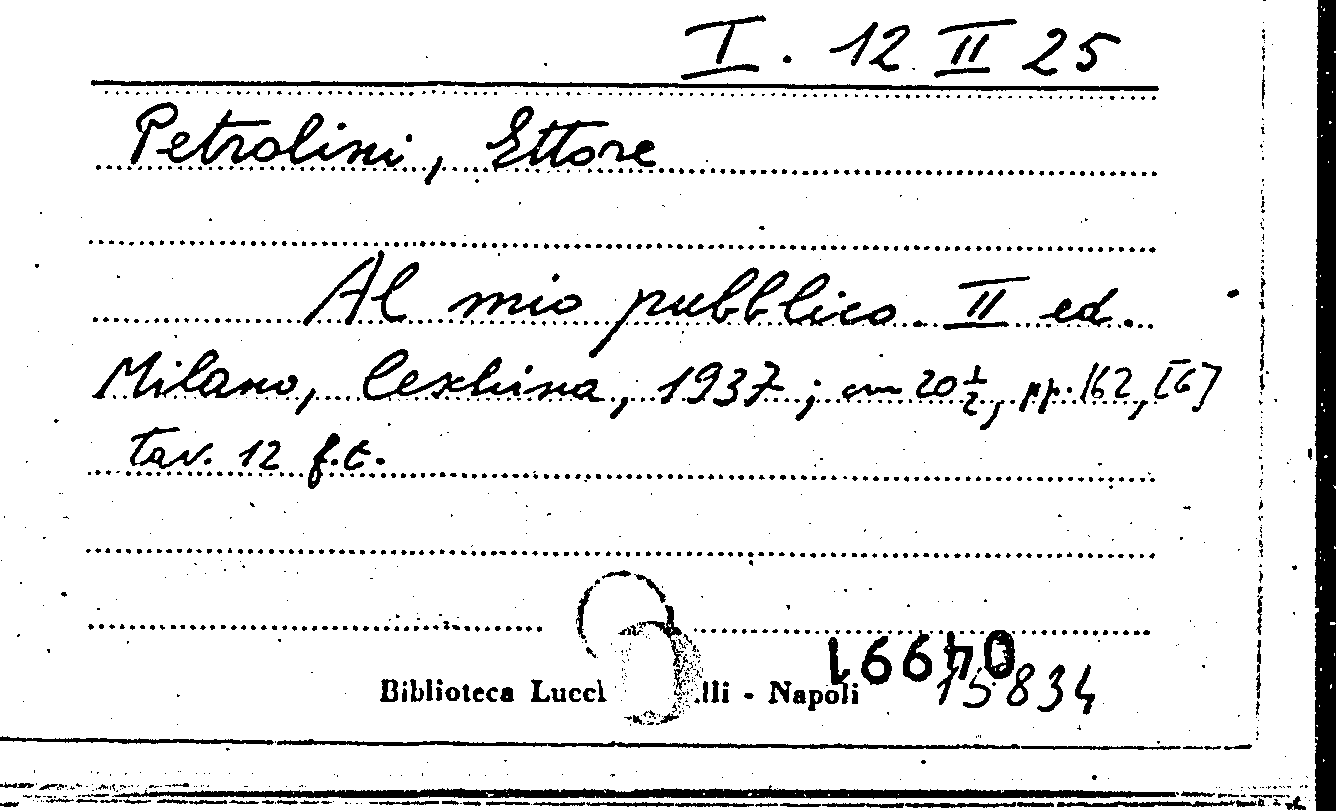 I. 12 II 25
Petrolini, Ettore
Al mio pubblico. II ed.
Milano, Ceschina, 1937; cm 20 1/2, pp. 162, [6]
tav. 12 f.t.
Biblioteca Lucc lli - Napoli
15834